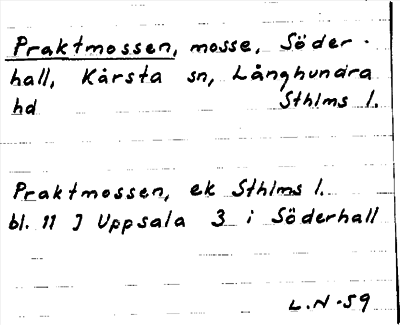 Praktmossen, mosse, Söder-
hall, Kårsta sn, Långhundra
hd Sthlms l.
Praktmossen, ek Sthlms l.
bl. 11 J Uppsala 3 i Söderhall
L.N-59